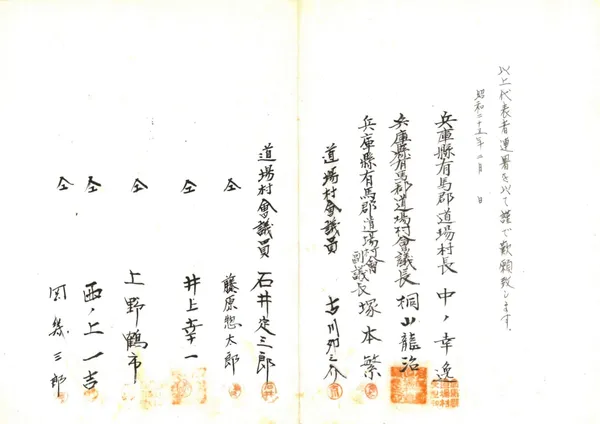 以上代表者連署を以て謹で歎願致します。
昭和二十五年二月 日
兵庫縣有馬郡道場村長 中ノ幸逸
兵庫縣有馬郡道場村會議長 桐山龍治
兵庫縣有馬郡道場村會副議長 塚本繁
道場村會議員 古川
道場村會議員 石井定三郎
仝 藤原惣太郎
仝 井上幸一
仝 上野鶴市
仝 西ノ上一吉
仝 岡幾三郎